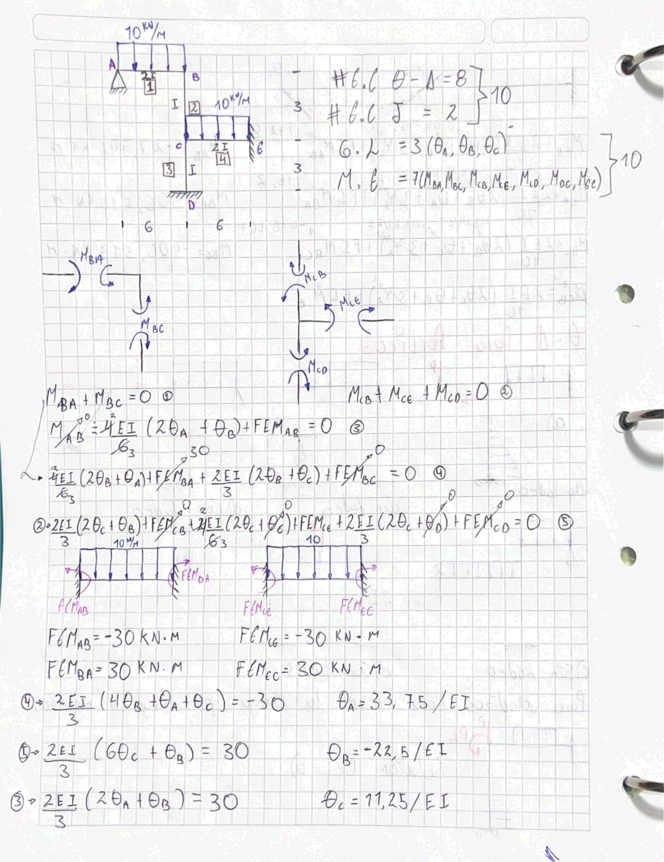 10 KN/M
A
B
2I
1
I
2
10 KN/M
3
C
2I
4
E
3
I
3
D
6
6
#G.L θ-Δ=8
#G.L J = 2
10
G.L = 3(θA, θB, θC)
M.E = 7(MBA, MBC, MCB, MCE, MCD, MDC, MEC)
10
MBA
MBC
MCB
MCE
MCD
MBA + MBC = 0 ①
MCB + MCE + MCD = 0 ②
MAB 0 = 4EI 2 / 6 3 (2θA + θB) + FEMAB = 0 ③
①→ 4EI 2 / 6 3 (2θB + θA) + FEMBA 30 + 2EI/3 (2θB + θC) + FEMBC 0 = 0 ④
②→ 2EI/3 (2θC + θB) + FEMCB 0 + 4EI 2 / 6 3 (2θC + θE 0) + FEMCE + 2EI/3 (2θC + θD 0) + FEMCD 0 = 0 ⑤
10 KN/M
10
3
FEMAB
FEMBA
FEMCE
FEMEC
FEMAB = -30 KN·M
FEMCE = -30 KN·M
FEMBA = 30 KN·M
FEMEC = 30 KN·M
④→ 2EI/3 (4θB + θA + θC) = -30
θA = 33,75/EI
⑤→ 2EI/3 (6θC + θB) = 30
θB = -22,5/EI
③→ 2EI/3 (2θA + θB) = 30
θC = 11,25/EI